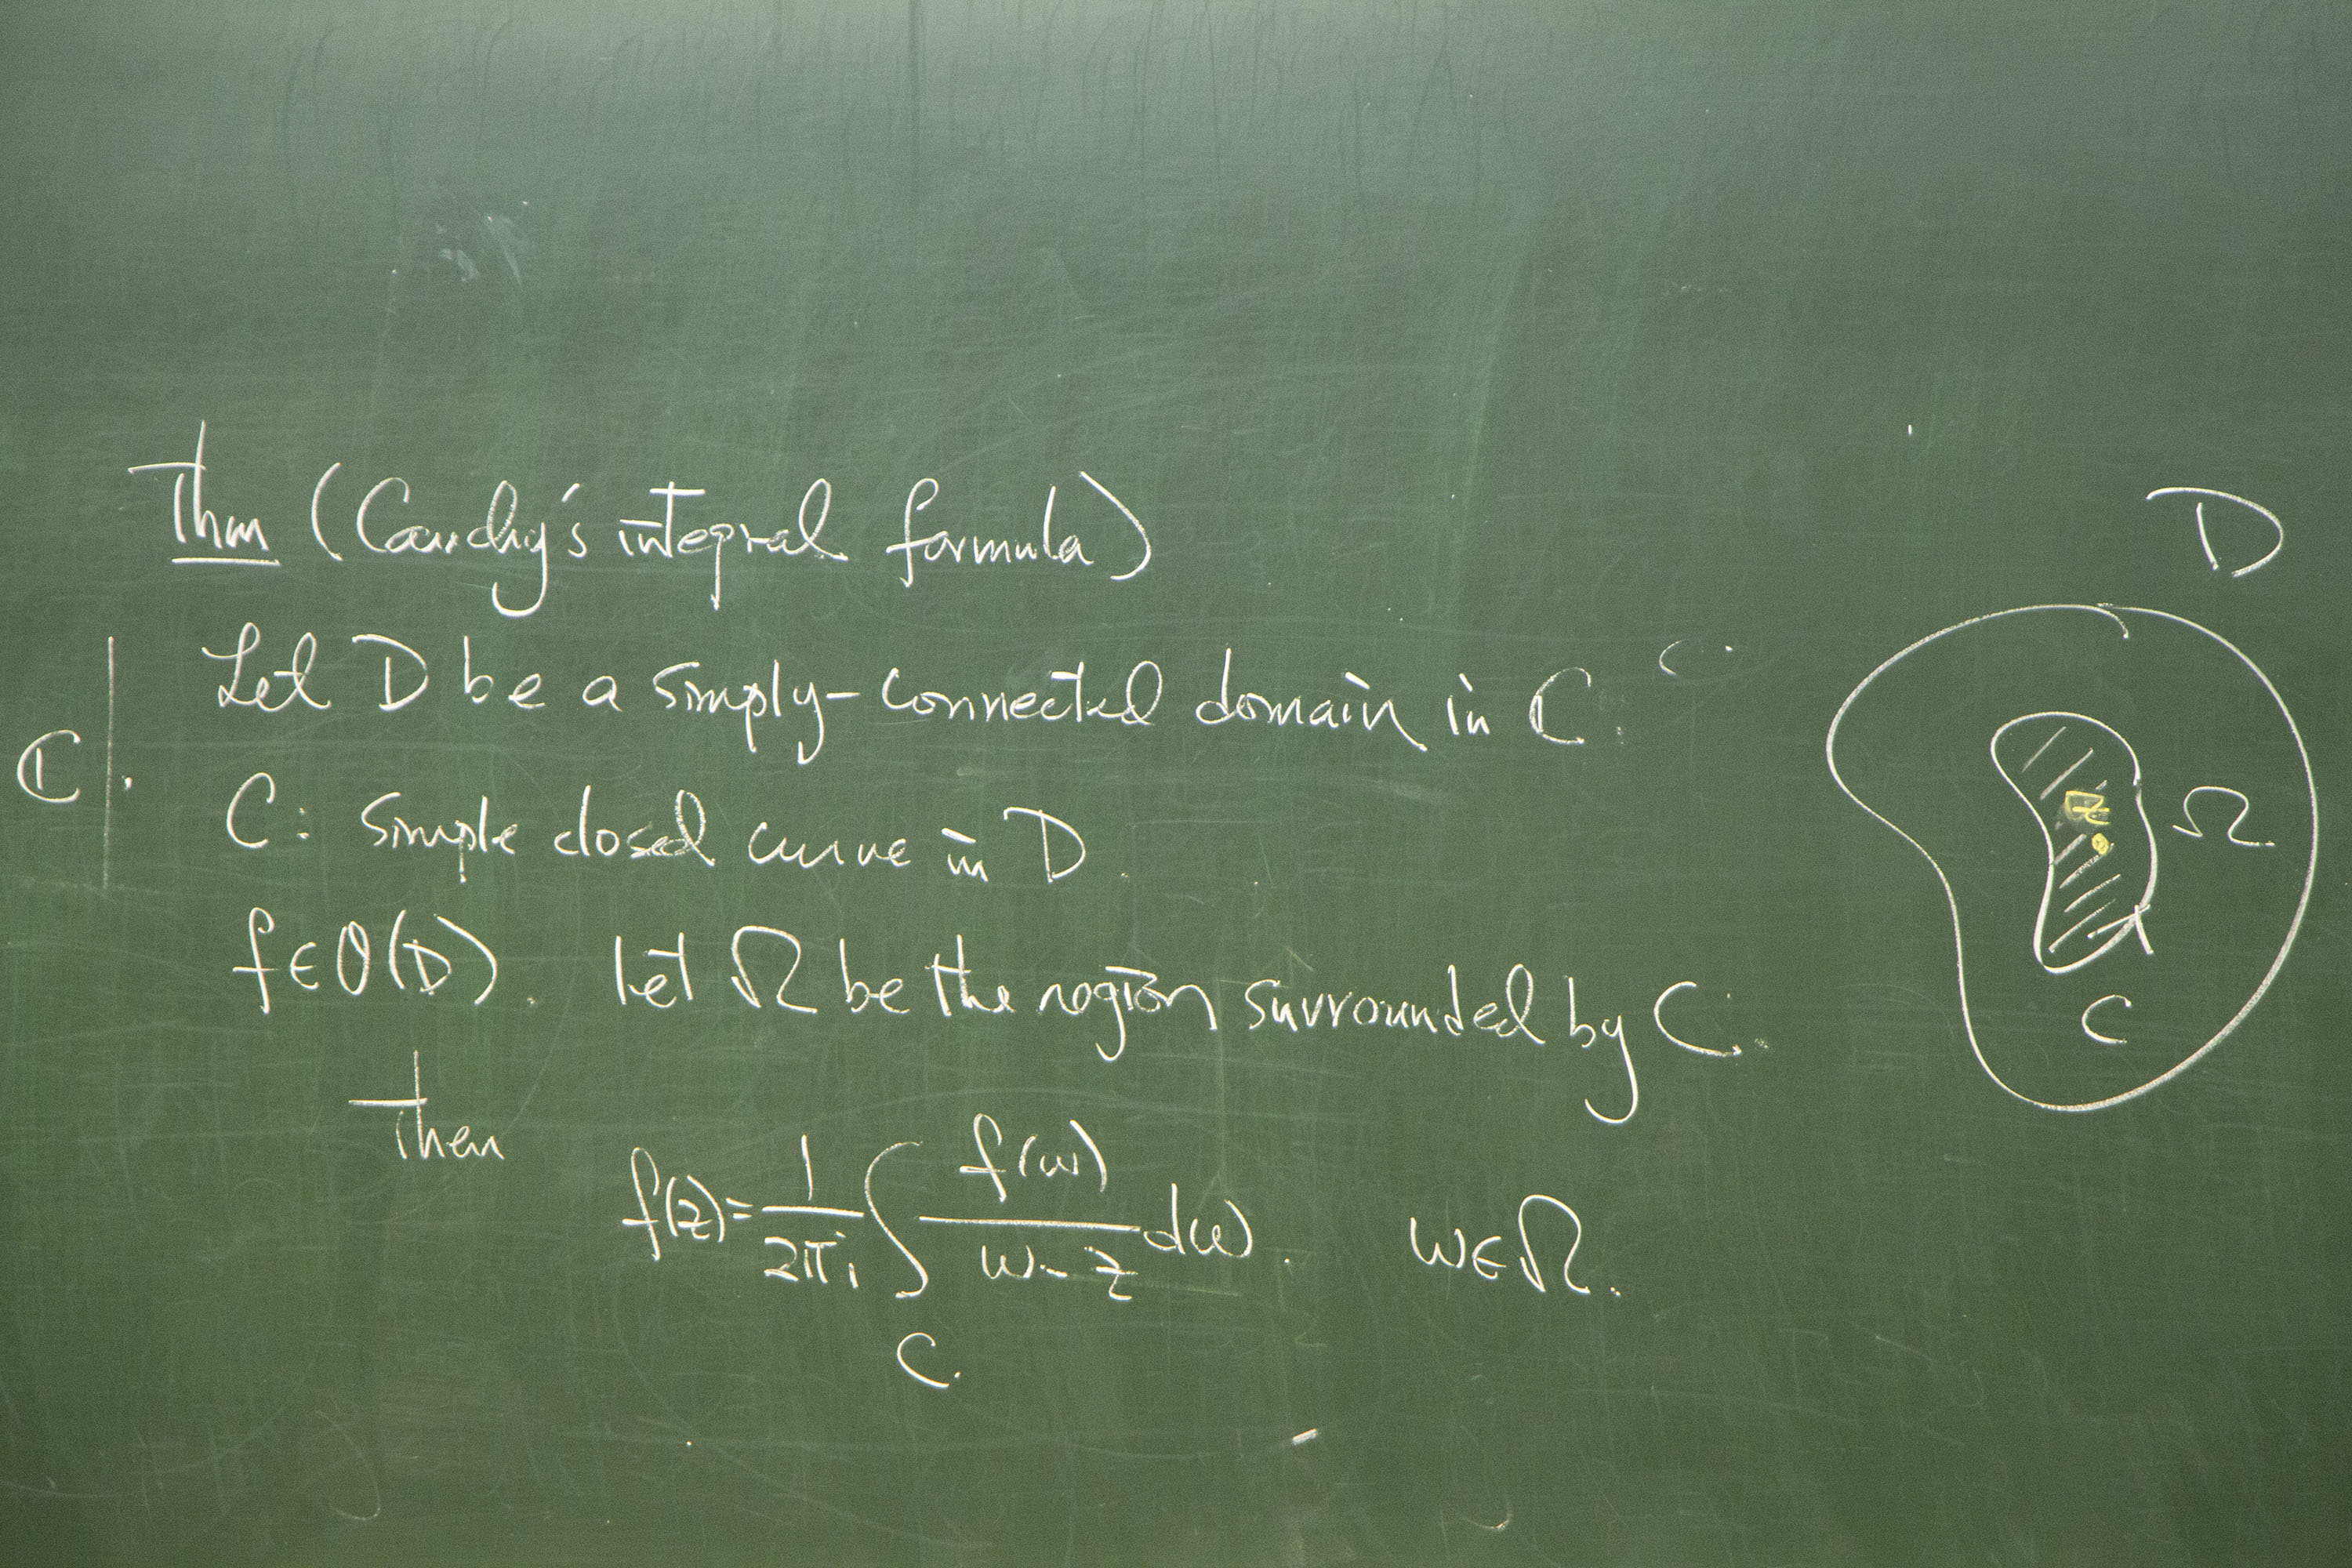 Thm (Cauchy's integral formula)
Let D be a simply-connected domain in ℂ.
ℂ
C: simple closed curve in D.
f∈O(D). Let Ω be the region surrounded by C.
Then
f(z) = 1/2πi ∫_C f(w)/w-z dw. w∈Ω.
D
z
Ω
C